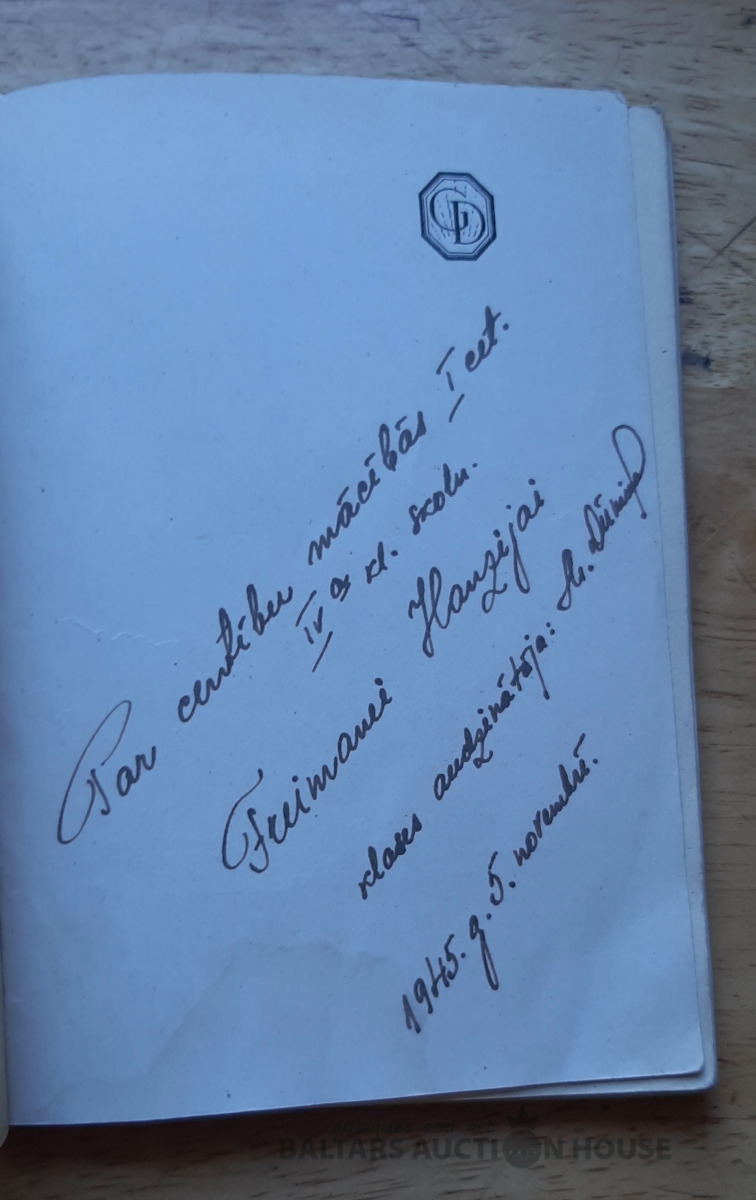 GD
Par centību mācībās I cet.
IV a kl. skoln.
Freimanei Hanzijai
klases audzinātāja:
1945. g. 5. novembrī.
BALTARS AUCTION.HOUSE